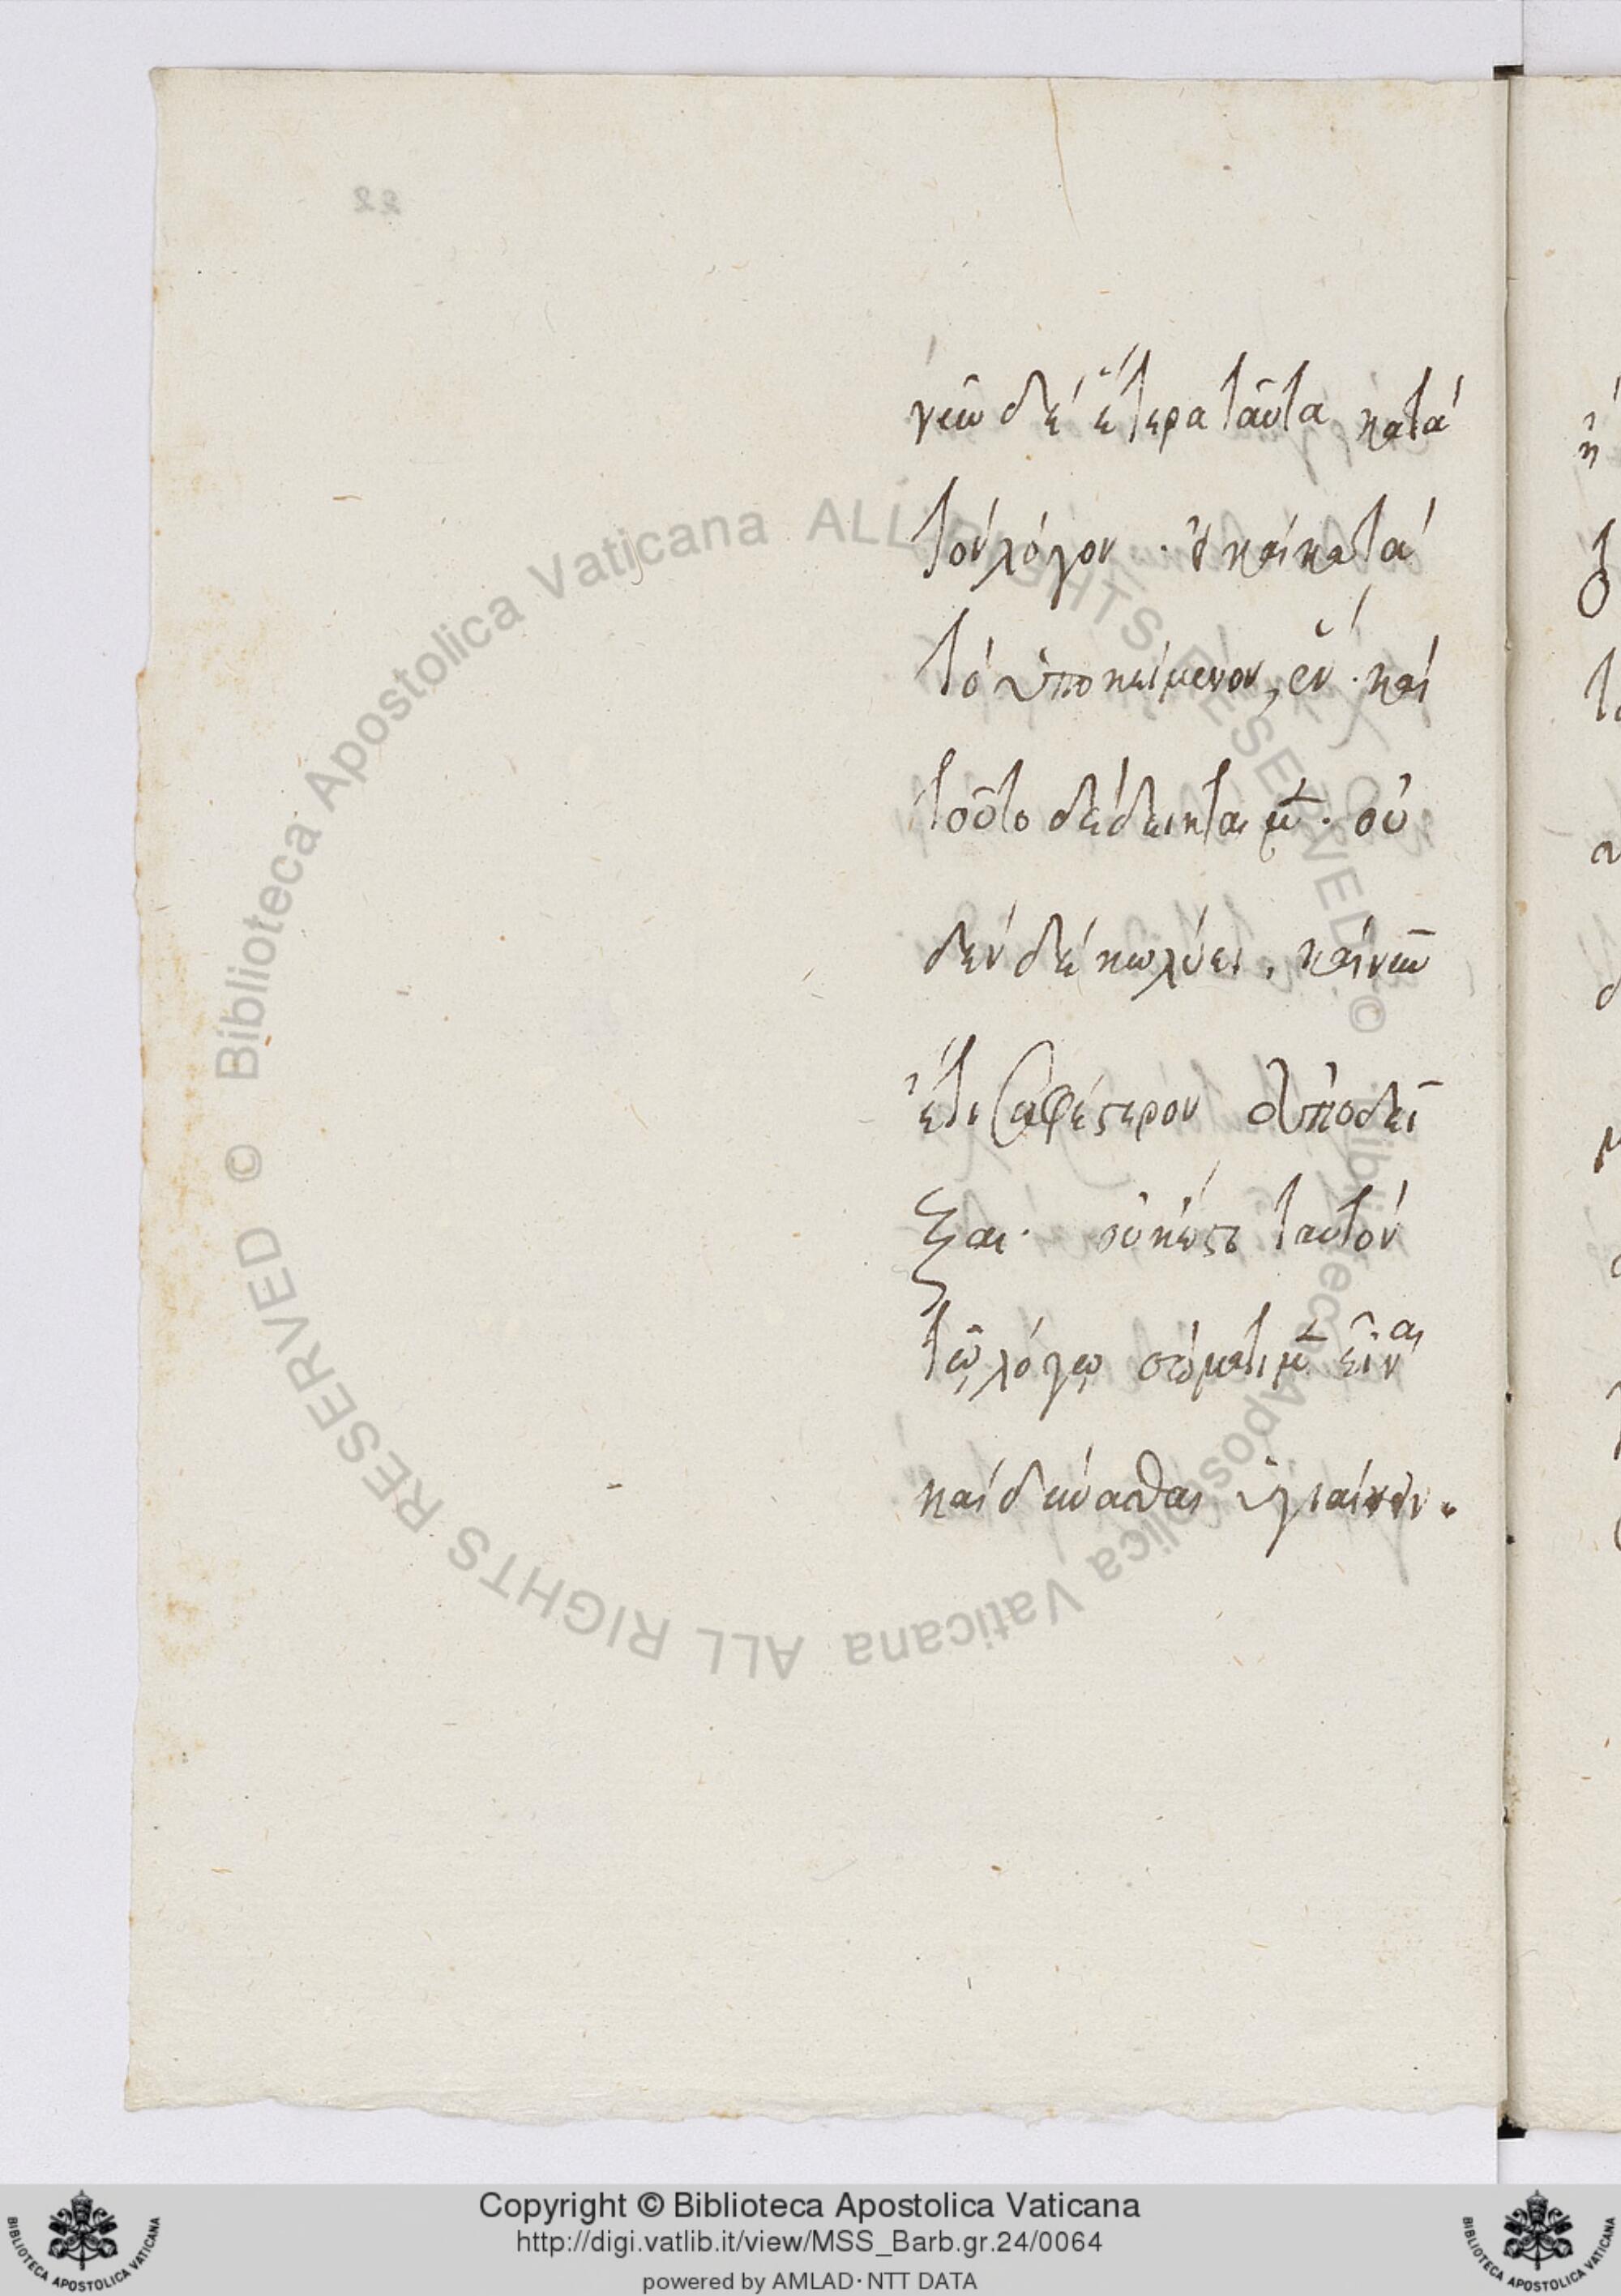 22
νῦν δὲ ἕτερα ταῦτα κατὰ
τὸν λόγον . εἰ καὶ κατὰ
τὸ ὑποκείμενον, ἕν . καὶ
τοῦτο δέδεικται μ̅ . οὐ
δὲν δὲ κωλύει . καὶ νῦν
ἔτι σαφέστερον ἀποδεῖ
ξαι . οὐκ ἔστι ταυτὸν
τῷ λόγῳ σώματι μ̅ εἶναι
καὶ δύνασθαι ὑγιαίνειν .
© Biblioteca Apostolica Vaticana ALL RIGHTS RESERVED
© Biblioteca Apostolica Vaticana ALL RIGHTS RESERVED
Copyright © Biblioteca Apostolica Vaticana
http://digi.vatlib.it/view/MSS_Barb.gr.24/0064
powered by AMLAD·NTT DATA
BIBLIOTECA APOSTOLICA VATICANA
BIBLIOTECA APOSTOLICA VATICANA